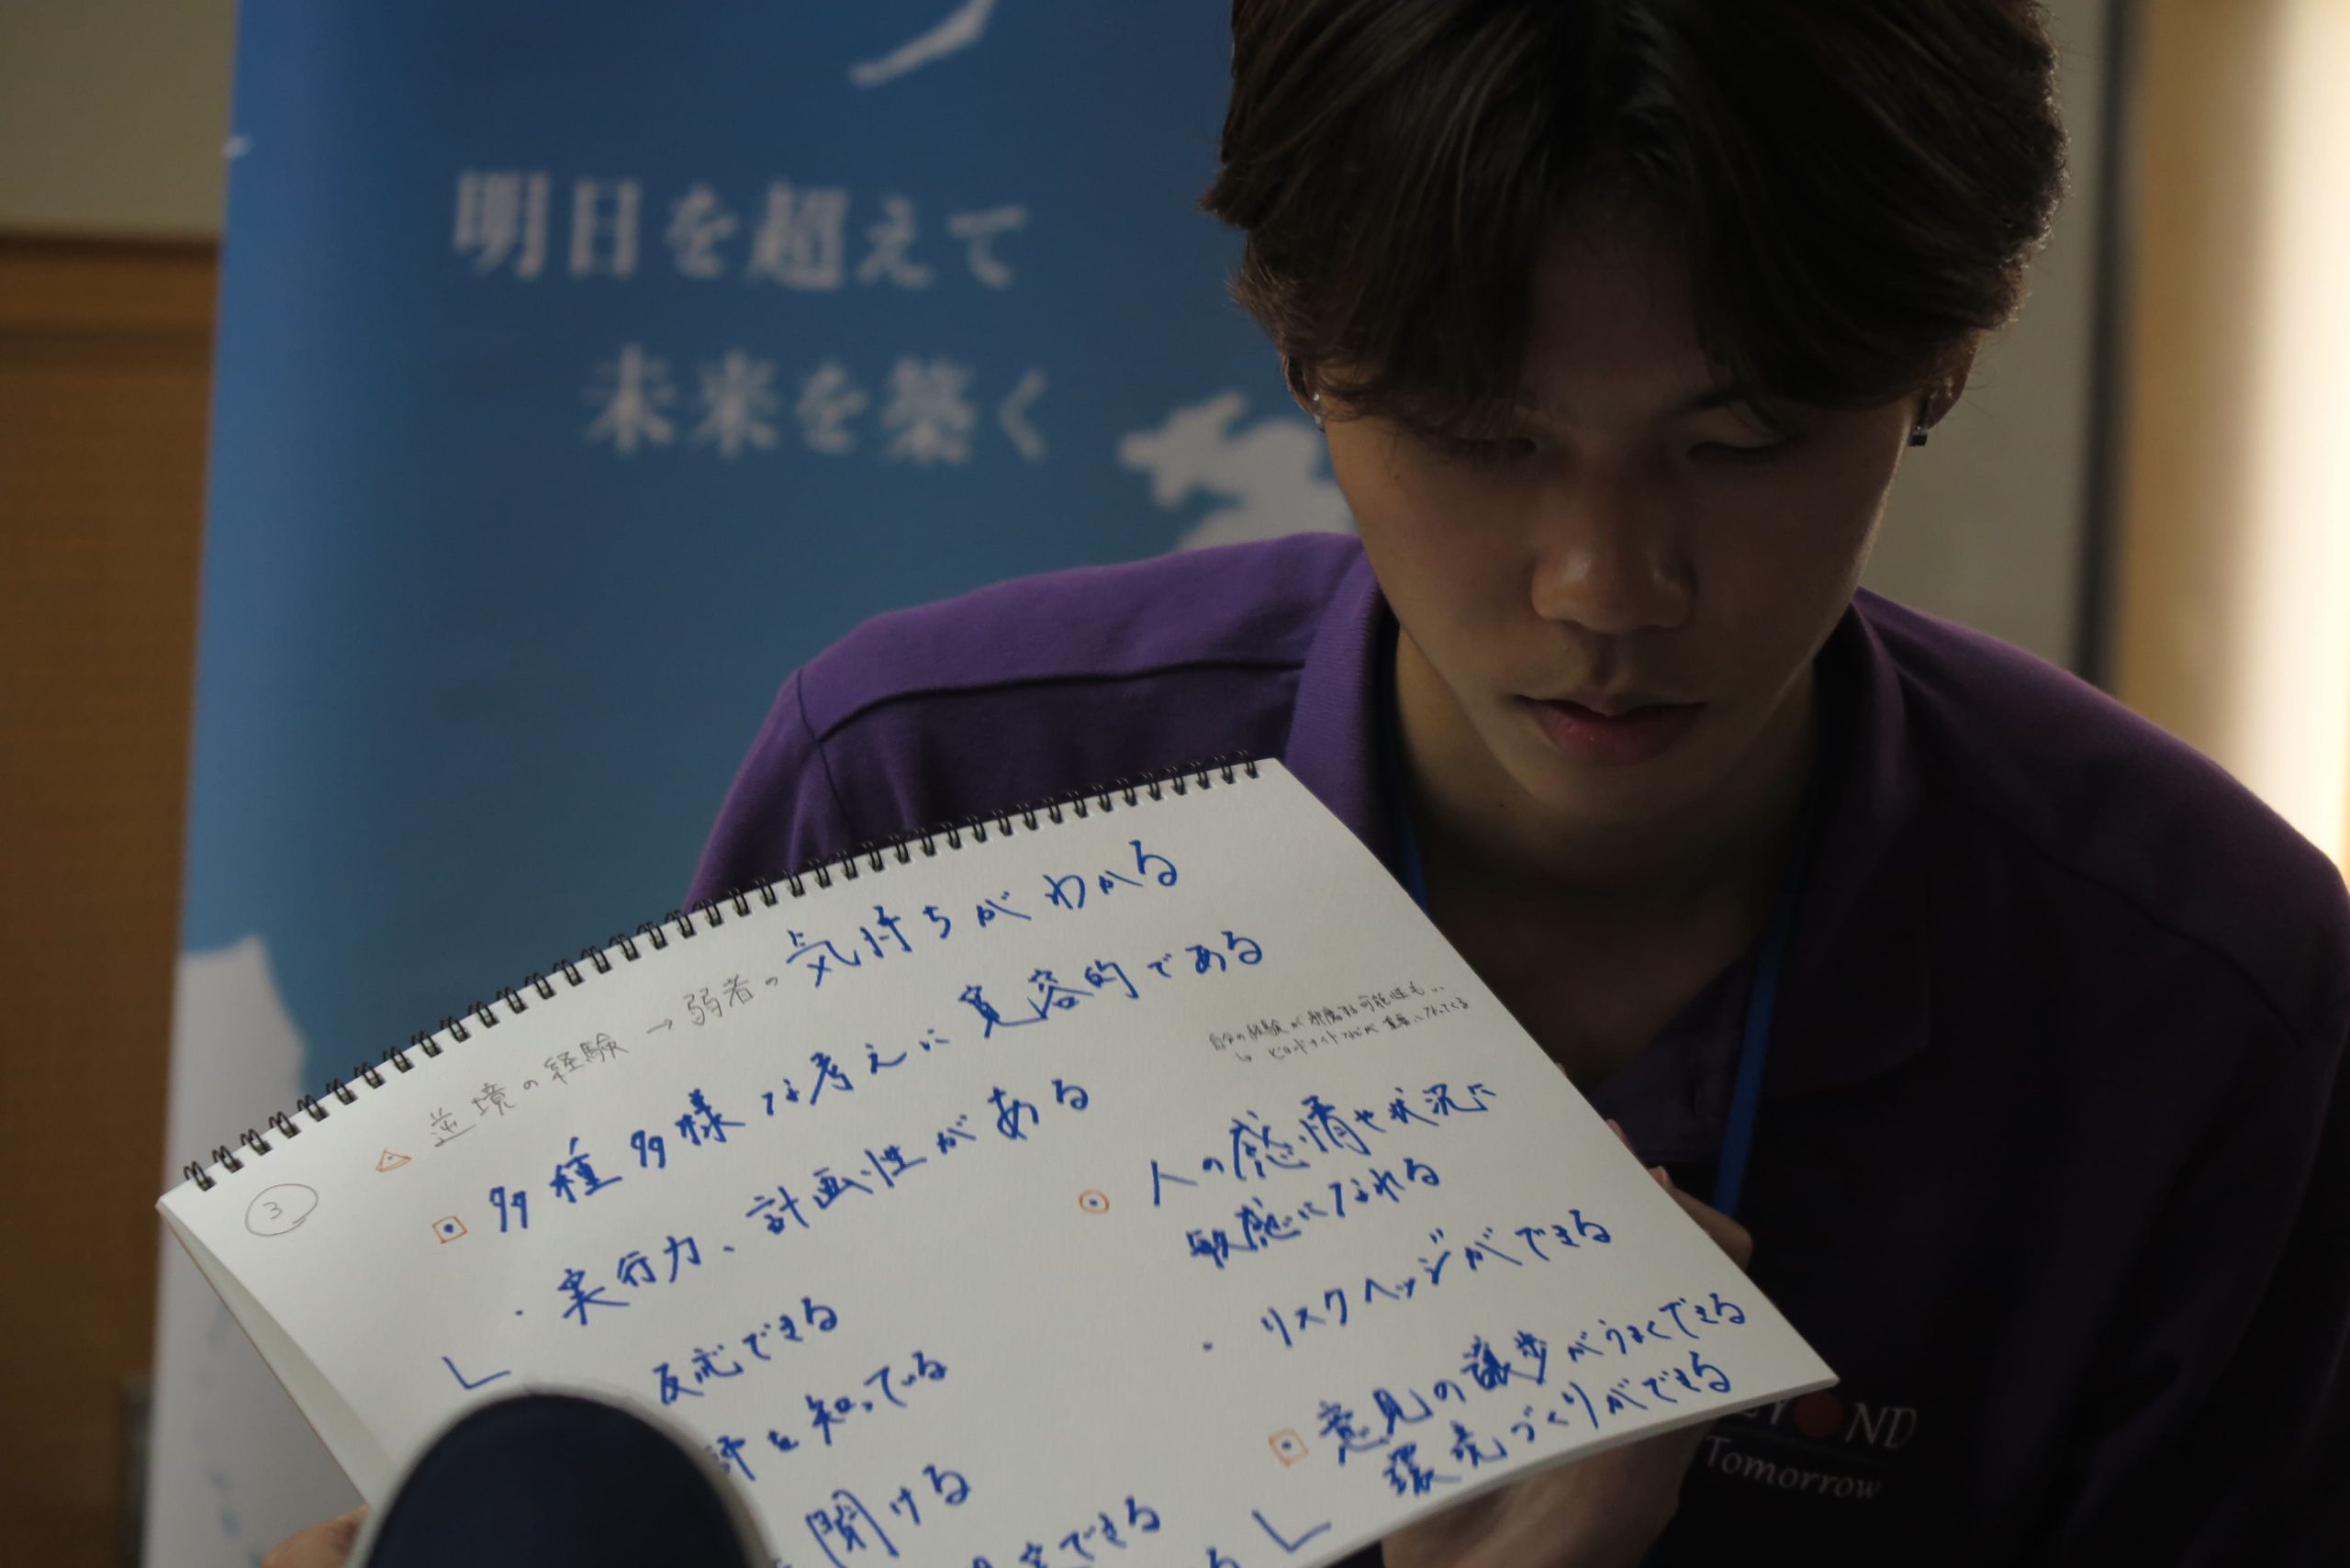 明日を超えて
未来を築く
③
逆境の経験→弱者の気持ちがわかる
多種多様な考えに寛容的である
・実行力、計画性がある
反応できる
を知っている
聞ける
できる
自分の経験が邪魔する可能性も…
人の感情や状況に
敏感になれる
・リスクヘッジができる
意見の譲歩がうまくできる
環境づくりができる
る
EYOND
Tomorrow